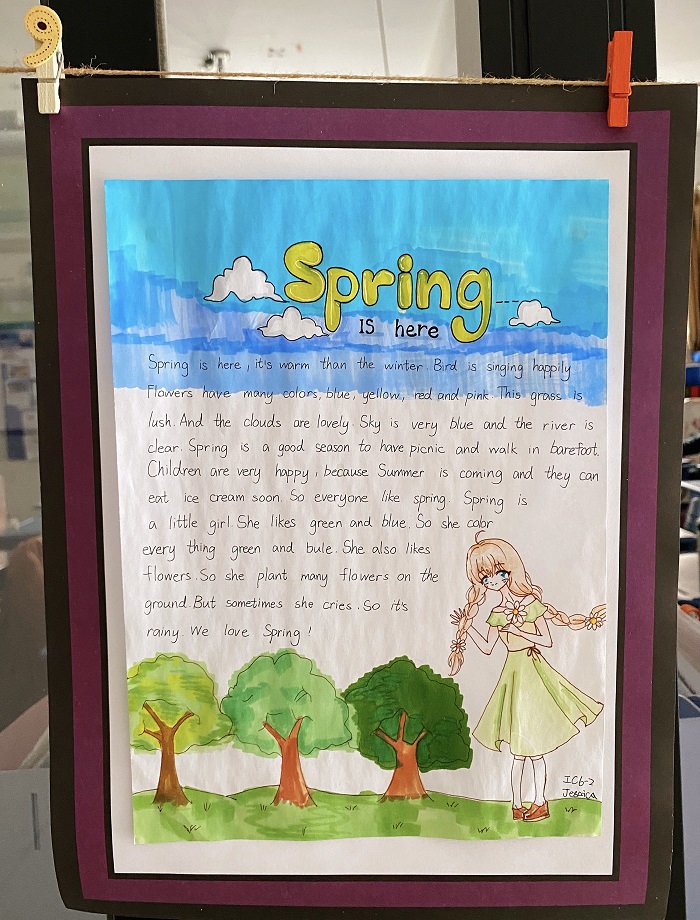 9
Spring
IS here
Spring is here, it's warm than the winter. Bird is singing happily
Flowers have many colors, blue, yellow, red and pink. This grass is
lush. And the clouds are lovely. Sky is very blue and the river is
clear. Spring is a good season to have picnic and walk in barefoot.
Children are very happy, because Summer is coming and they can
eat ice cream soon. So everyone like spring. Spring is
a little girl. She likes green and blue. So she color
every thing green and bule. She also likes
flowers. So she plant many flowers on the
ground. But sometimes she cries. So it's
rainy. We love Spring!
IC6-2
Jessica